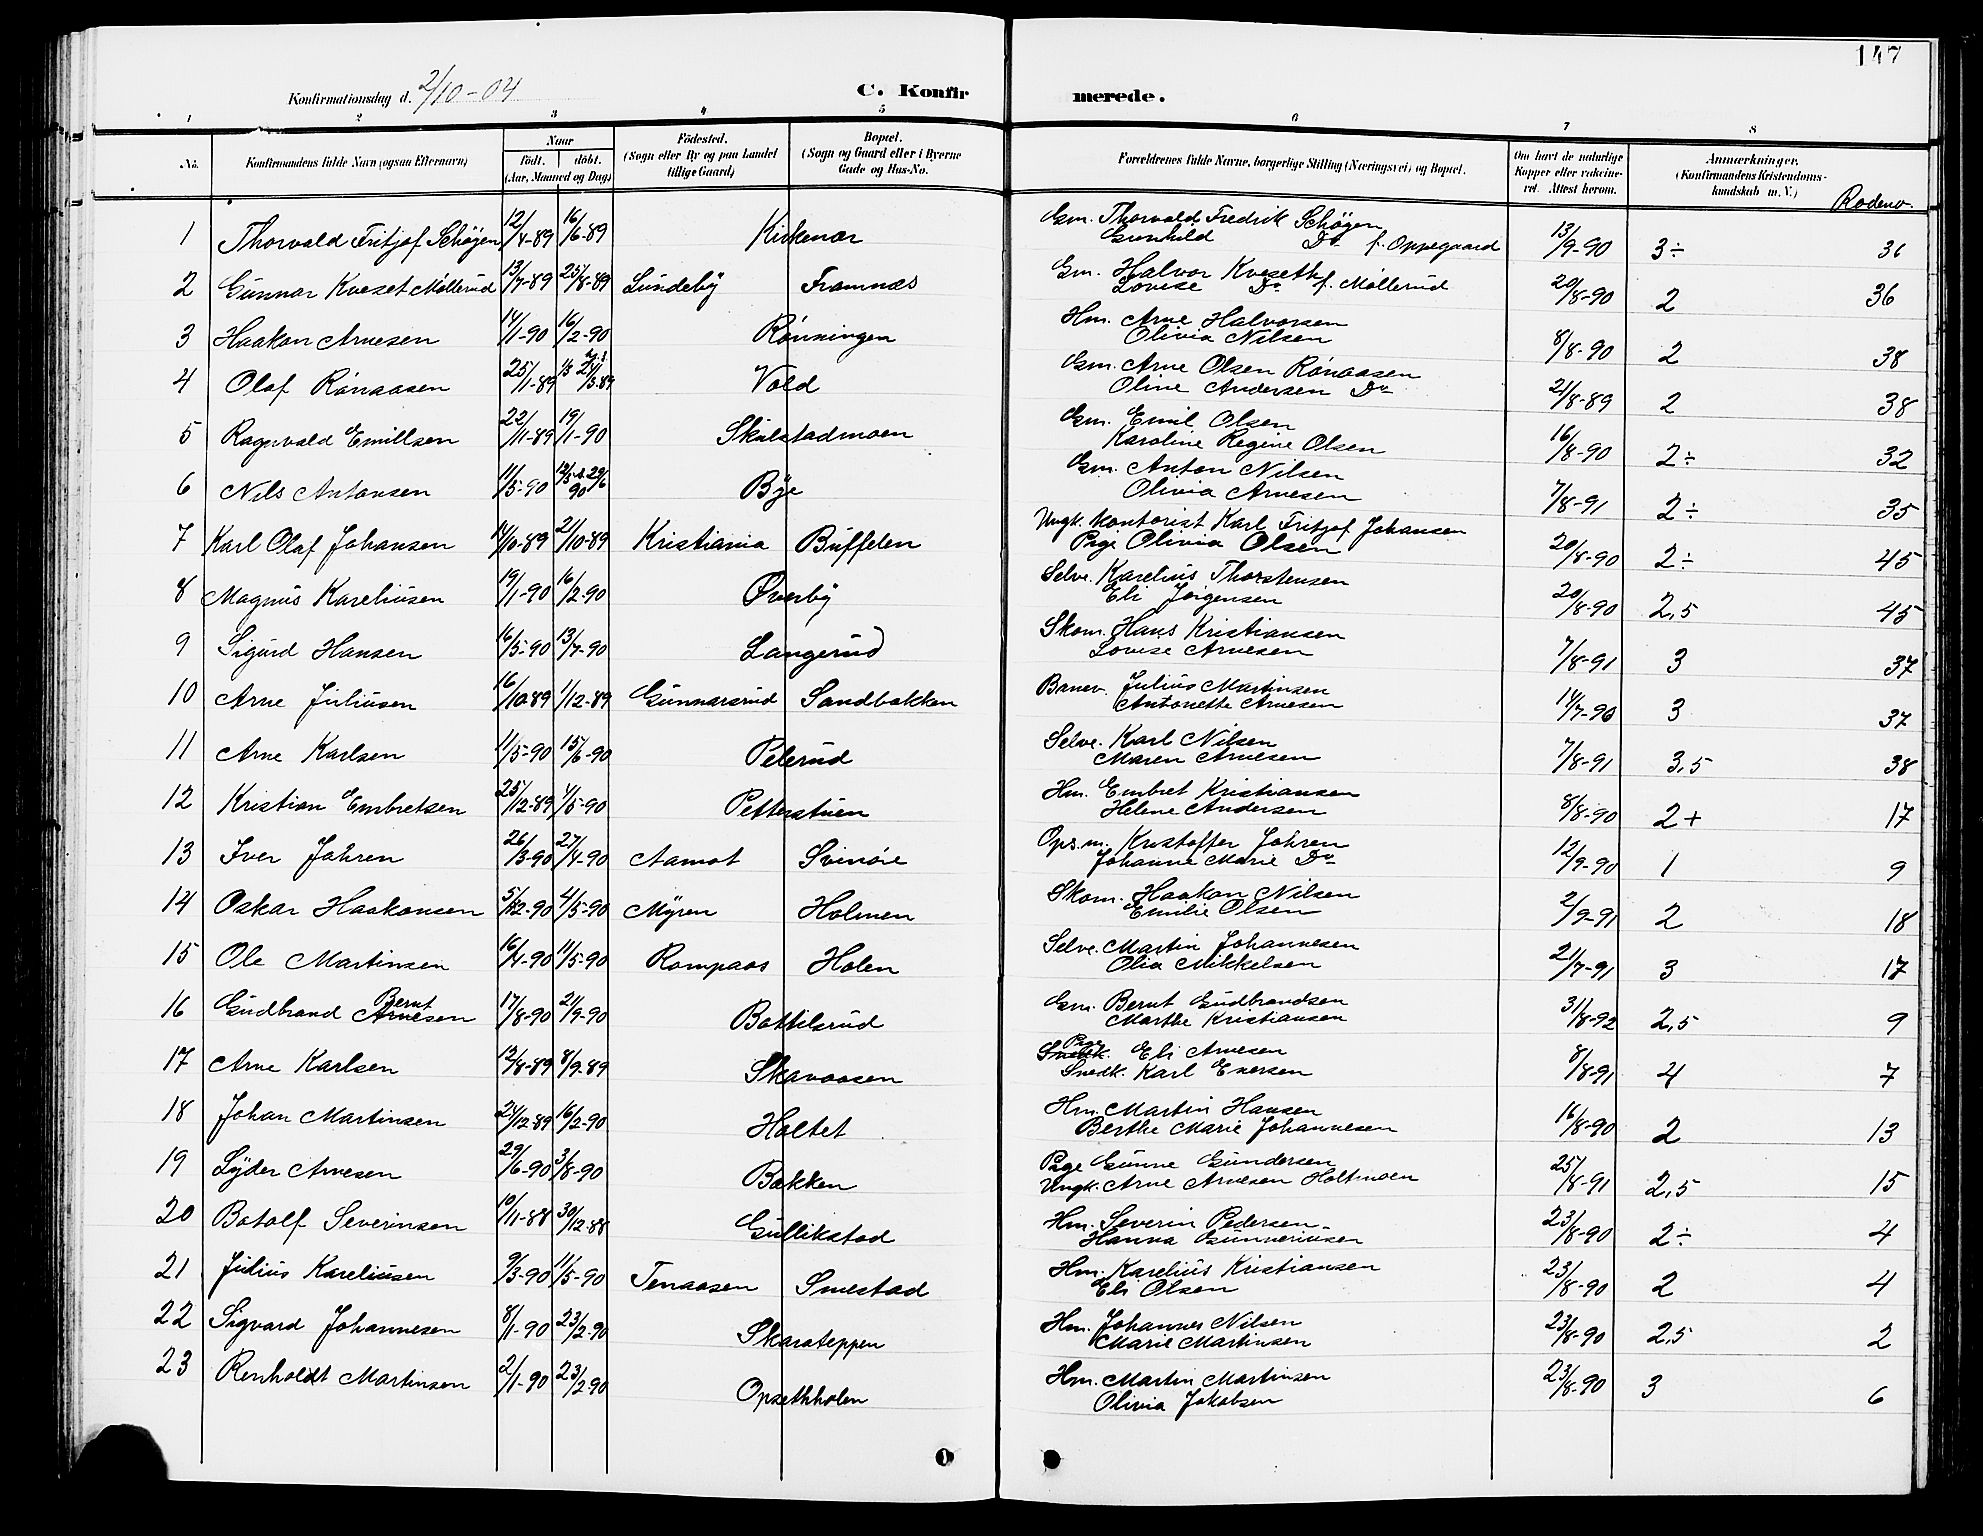 147
Konfirmationsdag d. 2/10-04
C. Konfirmerede.
1 2 3 4 5 6 7 8
No. Konfirmandens fulde Navn (ogsaa Efternavn) Naar födt. döbt. (Aar, Maaned og Dag) Födested. (Sogn eller By og paa Landet tillige Gaard) Bopæl. (Sogn og Gaard eller i Byerne Gade og Hus-No. Forældrenes fulde Navne, borgerlige Stilling (Næringsvei) og Bopæl. Om havt de naturlige Kopper eller vakcineret. Attest herom. Anmærkninger. (Konfirmandens Kristendomskundskab m. V.) Rodenr.
1 Thorvald Fritjof Schøyen 12/4-89 16/6-89 Kirkenær Gm. Thorvald Fredrik Schøyen Gunhild Do f. Oppegaard 13/9-90 3÷ 36
2 Gunnar Kveset Møllerud 13/7-89 25/8-89 Lundeby Framnæs Gm. Halvor Kveseth Lovise Do f. Møllerud 20/8-90 2 36
3 Haakon Arnesen 14/1-90 16/2-90 Rønningen Hm. Arne Halvorsen Olivia Nilsen 8/8-90 2 38
4 Olaf Rønaasen 25/1-89 Vold Gm. Arne Olsen Rønaasen Oline Andersen Do 21/8-89 2 38
5 Ragnvald Emillsen 22/11-89 19/1-90 Skulstadmoen Gm. Emil Olsen Karoline Regine Olsen 16/8-90 2÷ 32
6 Nils Antonsen 11/5-90 Bye Gm. Anton Nilsen Olivia Arnesen 7/8-91 2÷ 35
7 Karl Olaf Johansen 14/10-89 21/10-89 Kristiania Buffelen Ungk. Kontorist Karl Fritjof Johansen Pige Olivia Olsen 20/8-90 2÷ 45
8 Magnus Kareliusen 19/1-90 16/2-90 Øverby Selve. Karelius Thorstensen Eli Jørgensen 20/8-90 2,5 45
9 Sigurd Hansen 16/5-90 13/7-90 Langerud Skom. Hans Kristiansen Lovise Arnesen 7/8-91 3 37
10 Arne Juliusen 16/10-89 1/12-89 Gunnarsrud Sandbakken Banev. Julius Martinsen Antonette Arnesen 14/7-90 3 37
11 Arne Karlsen 11/5-90 15/6-90 Pelerud Selve. Karl Nilsen Maren Arnesen 7/8-91 3,5 38
12 Kristian Embretsen 25/12-89 4/5-90 Petterstuen Hm. Embret Kristiansen Helene Andersen 8/8-90 2+ 17
13 Iver Jahren 26/3-90 27/4-90 Aamot Svinøie Ops.m. Kristoffer Jahren Johanne Marie Do 12/9-90 1 9
14 Oskar Haakonsen 5/12-90 4/5-90 Myren Holmen Skom. Haakon Nilsen Emilie Olsen 2/9-91 2 18
15 Ole Martinsen 16/4-90 11/5-90 Rompaas Holen Selve. Martin Johannesen Olia Mikkelsen 21/7-91 3 17
16 Gudbrand Bernt Arnesen 17/8-90 21/9-90 Bottilsrud Gm. Bernt Gudbrandsen Marthe Kristiansen 31/8-92 2,5 9
17 Arne Karlsen 12/8-89 8/9-89 Skavaasen Pige Eli Arnesen Snedk. Karl Enersen 8/8-91 4 7
18 Johan Martinsen 24/12-89 16/2-90 Holtet Hm. Martin Hansen Berthe Marie Johannesen 16/8-90 2 13
19 Lyder Arnesen 29/6-90 3/8-90 Bakken Pige Gunne Gundersen Ungk. Arne Arnesen Holtmoen 25/8-91 2,5 15
20 Botolf Severinsen 10/11-88 30/12-88 Gullikstad Hm. Severin Pedersen Hanna Gunnerinsen 23/8-90 2÷ 4
21 Julius Kareliusen 9/3-90 11/5-90 Tenaasen Smestad Hm. Karelius Kristiansen Eli Olsen 23/8-90 2 4
22 Sigvard Johannesen 8/1-90 23/2-90 Skarateppen Hm. Johannes Nilsen Marie Martinsen 23/8-90 2,5 2
23 Renholdt Martinsen 2/1-90 23/2-90 Opsethholen Hm. Martin Martinsen Olivia Jakobsen 23/8-90 3 6